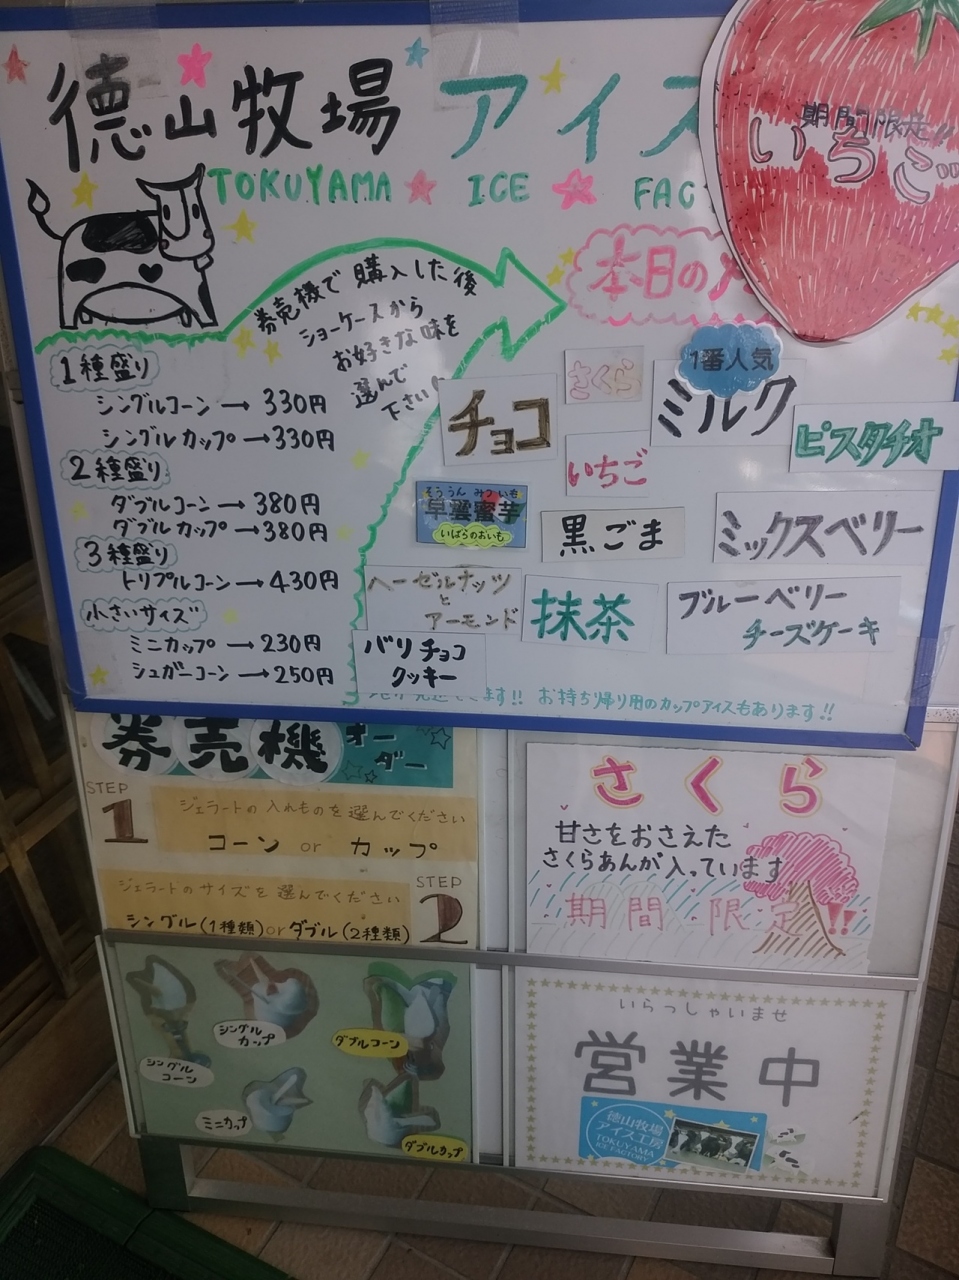 徳山牧場 アイス
期間限定!!
いちご
TOKUYAMA ICE FAC
券売機で購入した後
ショーケースから
お好きな味を
選んで
下さい
本日の
1種盛り
シングルコーン→330円
シングルカップ→330円
2種盛り
ダブルコーン→380円
ダブルカップ→380円
3種盛り
トリプルコーン→430円
小さいサイズ
ミニカップ→230円
シュガーコーン→250円
1番人気
チョコ
さくら
ミルク
いちご
ピスタチオ
そううん みついも
早雲蜜芋
いばらのおいも
黒ごま
ミックスベリー
ヘーゼルナッツ
と
アーモンド
抹茶
ブルーベリー
チーズケーキ
パリチョコ
クッキー
ます!! お持ち帰り用のカップアイスもあります!!
券売機 オーダー
STEP
1
ジェラートの入れものを選んでください
コーン or カップ
ジェラートのサイズを選んでください
STEP
2
シングル(1種類)orダブル(2種類)
さくら
甘さをおさえた
さくらあんが入っています
期間限定!!
シングル
コーン
シングル
カップ
ダブルコーン
ミニカップ
ダブルカップ
いらっしゃいませ
営業中
徳山牧場
アイス工房
TOKUYAMA
ICE FACTORY